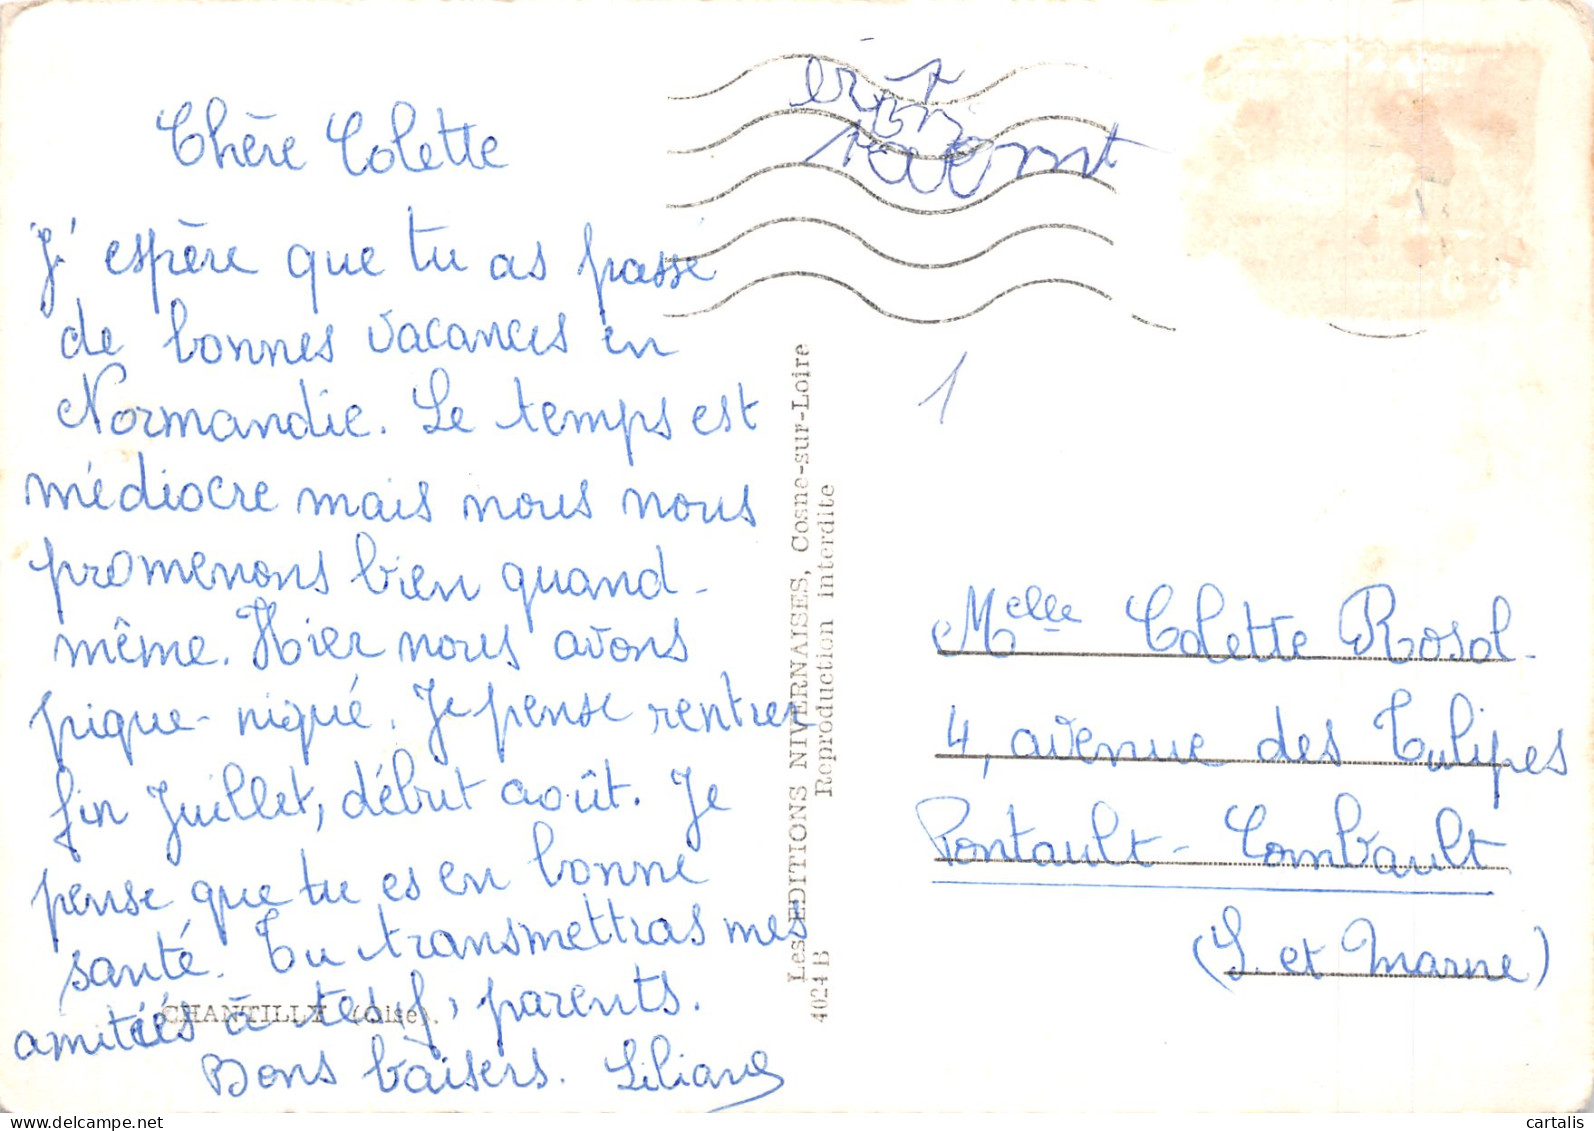 Chère Colette
J'espère que tu as passé
de bonnes vacances en
Normandie. Le temps est
médiocre mais nous nous
promenons bien quand-
même. Hier nous avons
pique-niqué. Je pense rentrer
fin Juillet, début août. Je
pense que tu es en bonne
santé. Tu transmettras mes
amitiés à tes parents.
Bons baisers. Liliane
CHANTILLY (Oise).
Les EDITIONS NIVERNAISES, Cosne-sur-Loire
4024 B Reproduction interdite
1
Melle Colette Rosol
4, avenue des Tulipes
Pontault-Combault
(S. et Marne)
cartalis